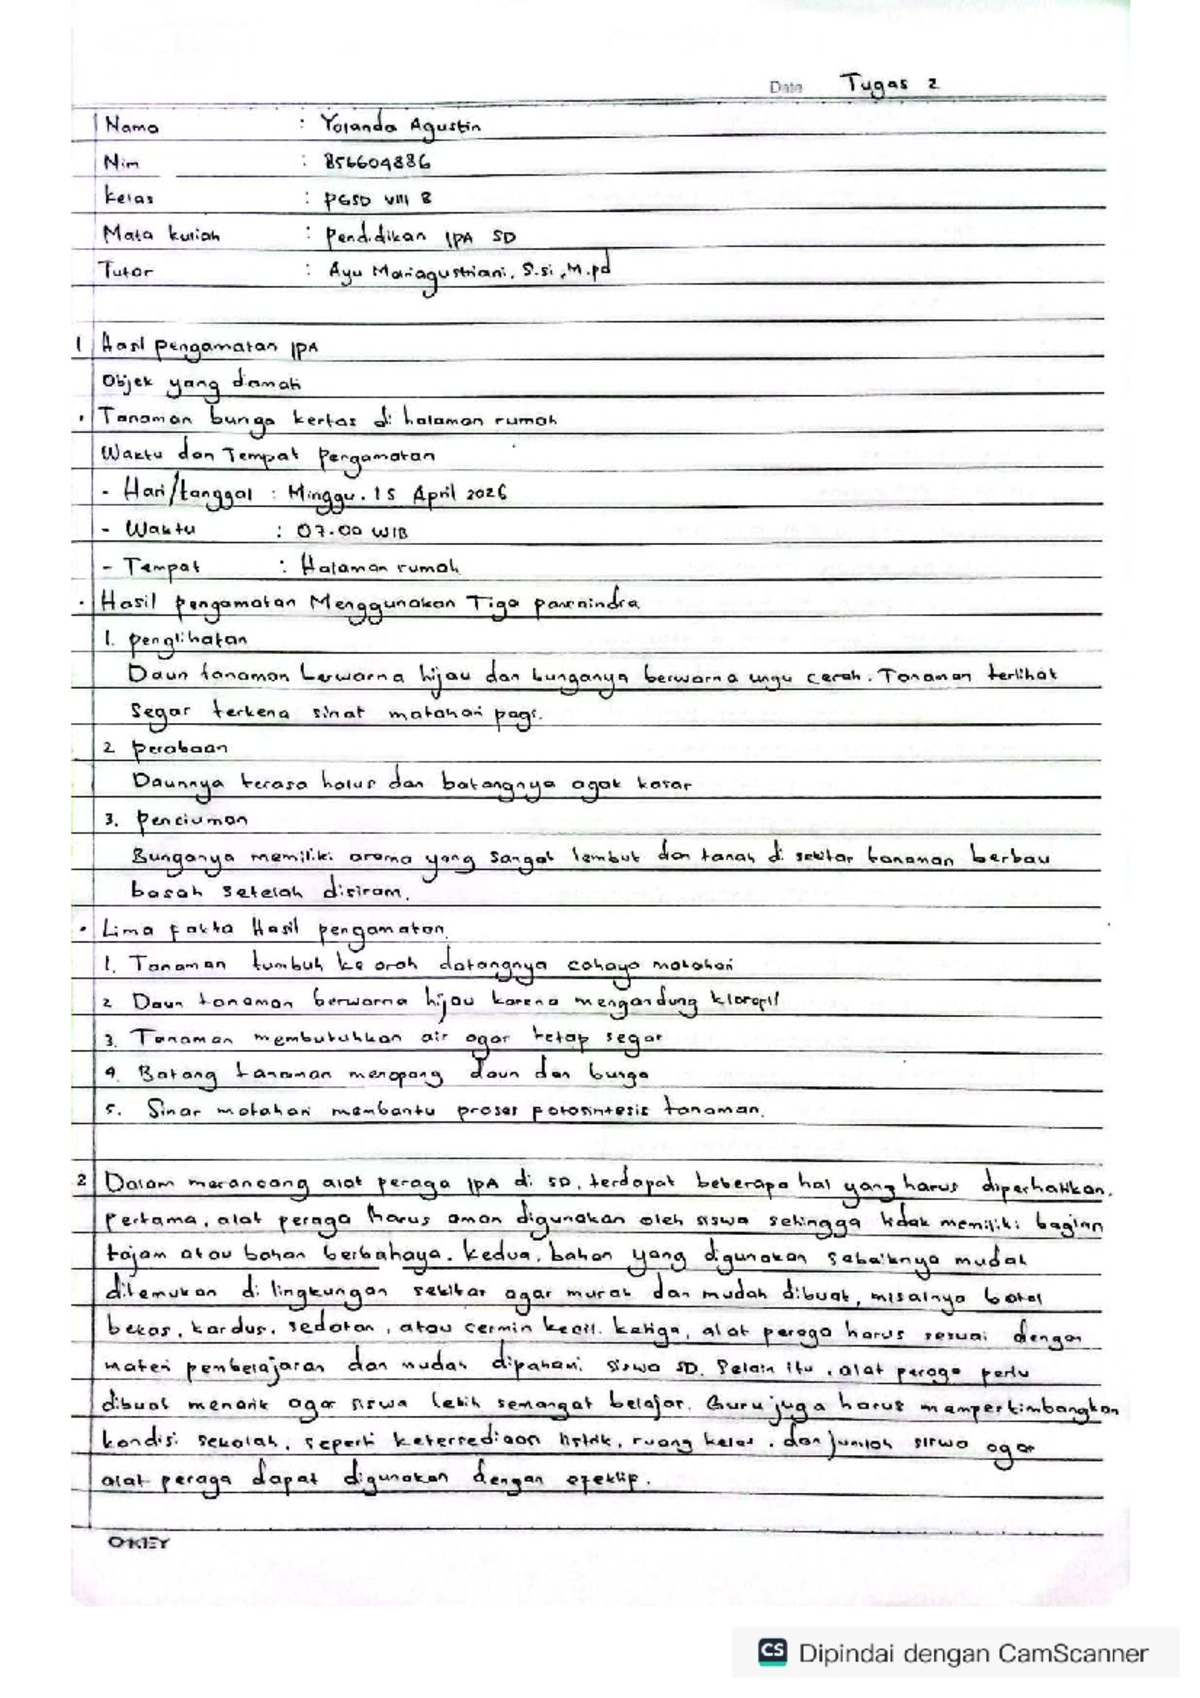 Date Tugas 2
Nama : Yolanda Agustin
Nim : 856604886
Kelas : PGSD VIII B
Mata kuliah : Pendidikan IPA SD
Tutor : Ayu Mariagustriani, S.si, M.pd
1 Hasil pengamatan IPA
Objek yang damati
• Tanaman bunga kertas di halaman rumah
Waktu dan Tempat pergamatan
- Hari/tanggal : Minggu. 15 April 2026
- Waktu : 07.00 WIB
- Tempat : Halaman rumah
• Hasil pengamatan Menggunakan Tiga pancaindra
1. penglihatan
Daun tanaman berwarna hijau dan bunganya berwarna ungu cerah. Tanaman terlihat
Segar terkena sinat matahari pagi.
2 perabaan
Daunnya terasa halus dan batangnya agak kasar
3. Penciuman
Bunganya memiliki aroma yang sangat lembut dan tanah di sekitar tanaman berbau
basah setelah disiram.
• Lima fakta Hasil pengamatan.
1. Tanaman tumbuh ke arah datangnya cahaya matahari
2 Daun tanaman berwarna hijau karena mengandung kloropil
3. Tanaman membutuhkan air agar tetap segar
4. Batang tanaman menopang daun dan bunga
5. Sinar matahari membantu proses potosintesis tanaman.
2 Dalam merancang alat peraga IPA di SD, terdapat beberapa hal yang harus diperhatikan.
Pertama, alat peraga harus aman digunakan oleh siswa sehingga tidak memiliki bagian
tajam atau bahan berbahaya. Kedua, bahan yang digunakan sebaiknya mudah
ditemukan di lingkungan sekitar agar murah dan mudah dibuat, misalnya botol
bekas, kardus, sedotan, atau cermin kecil. Ketiga, alat peraga harus sesuai dengan
materi pembelajaran dan mudah dipahami siswa SD. Selain itu, alat peraga perlu
dibuat menarik agar siswa lebih semangat belajar. Guru juga harus mempertimbangkan
kondisi sekolah, seperti ketersediaan listrik, ruang kelas, dan jumlah siswa agar
alat peraga dapat digunakan dengan epektip.
OKEY
CS Dipindai dengan CamScanner